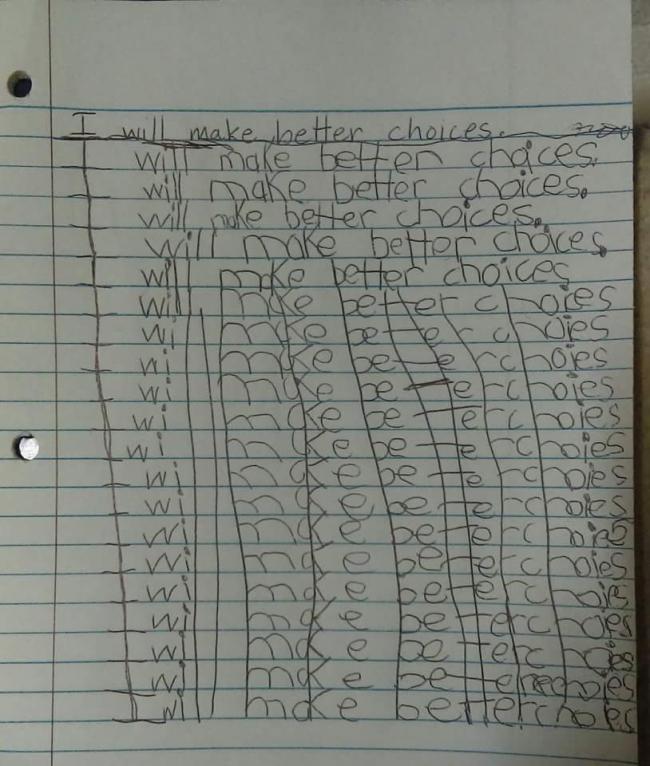 I will make better choices.
I will make better choices.
I will make better choices.
I will make better choices.
I will make better choices.
I will make better choices
I will make better choies
I will make better choies
I will make better choies
I will make better choies
I will make better choies
I will make better choies
I will make better choies
I will make better choies
I will make better choies
I will make better choies
I will make better choies
I will make better choies
I will make better choies
I will make better
I will make better choies